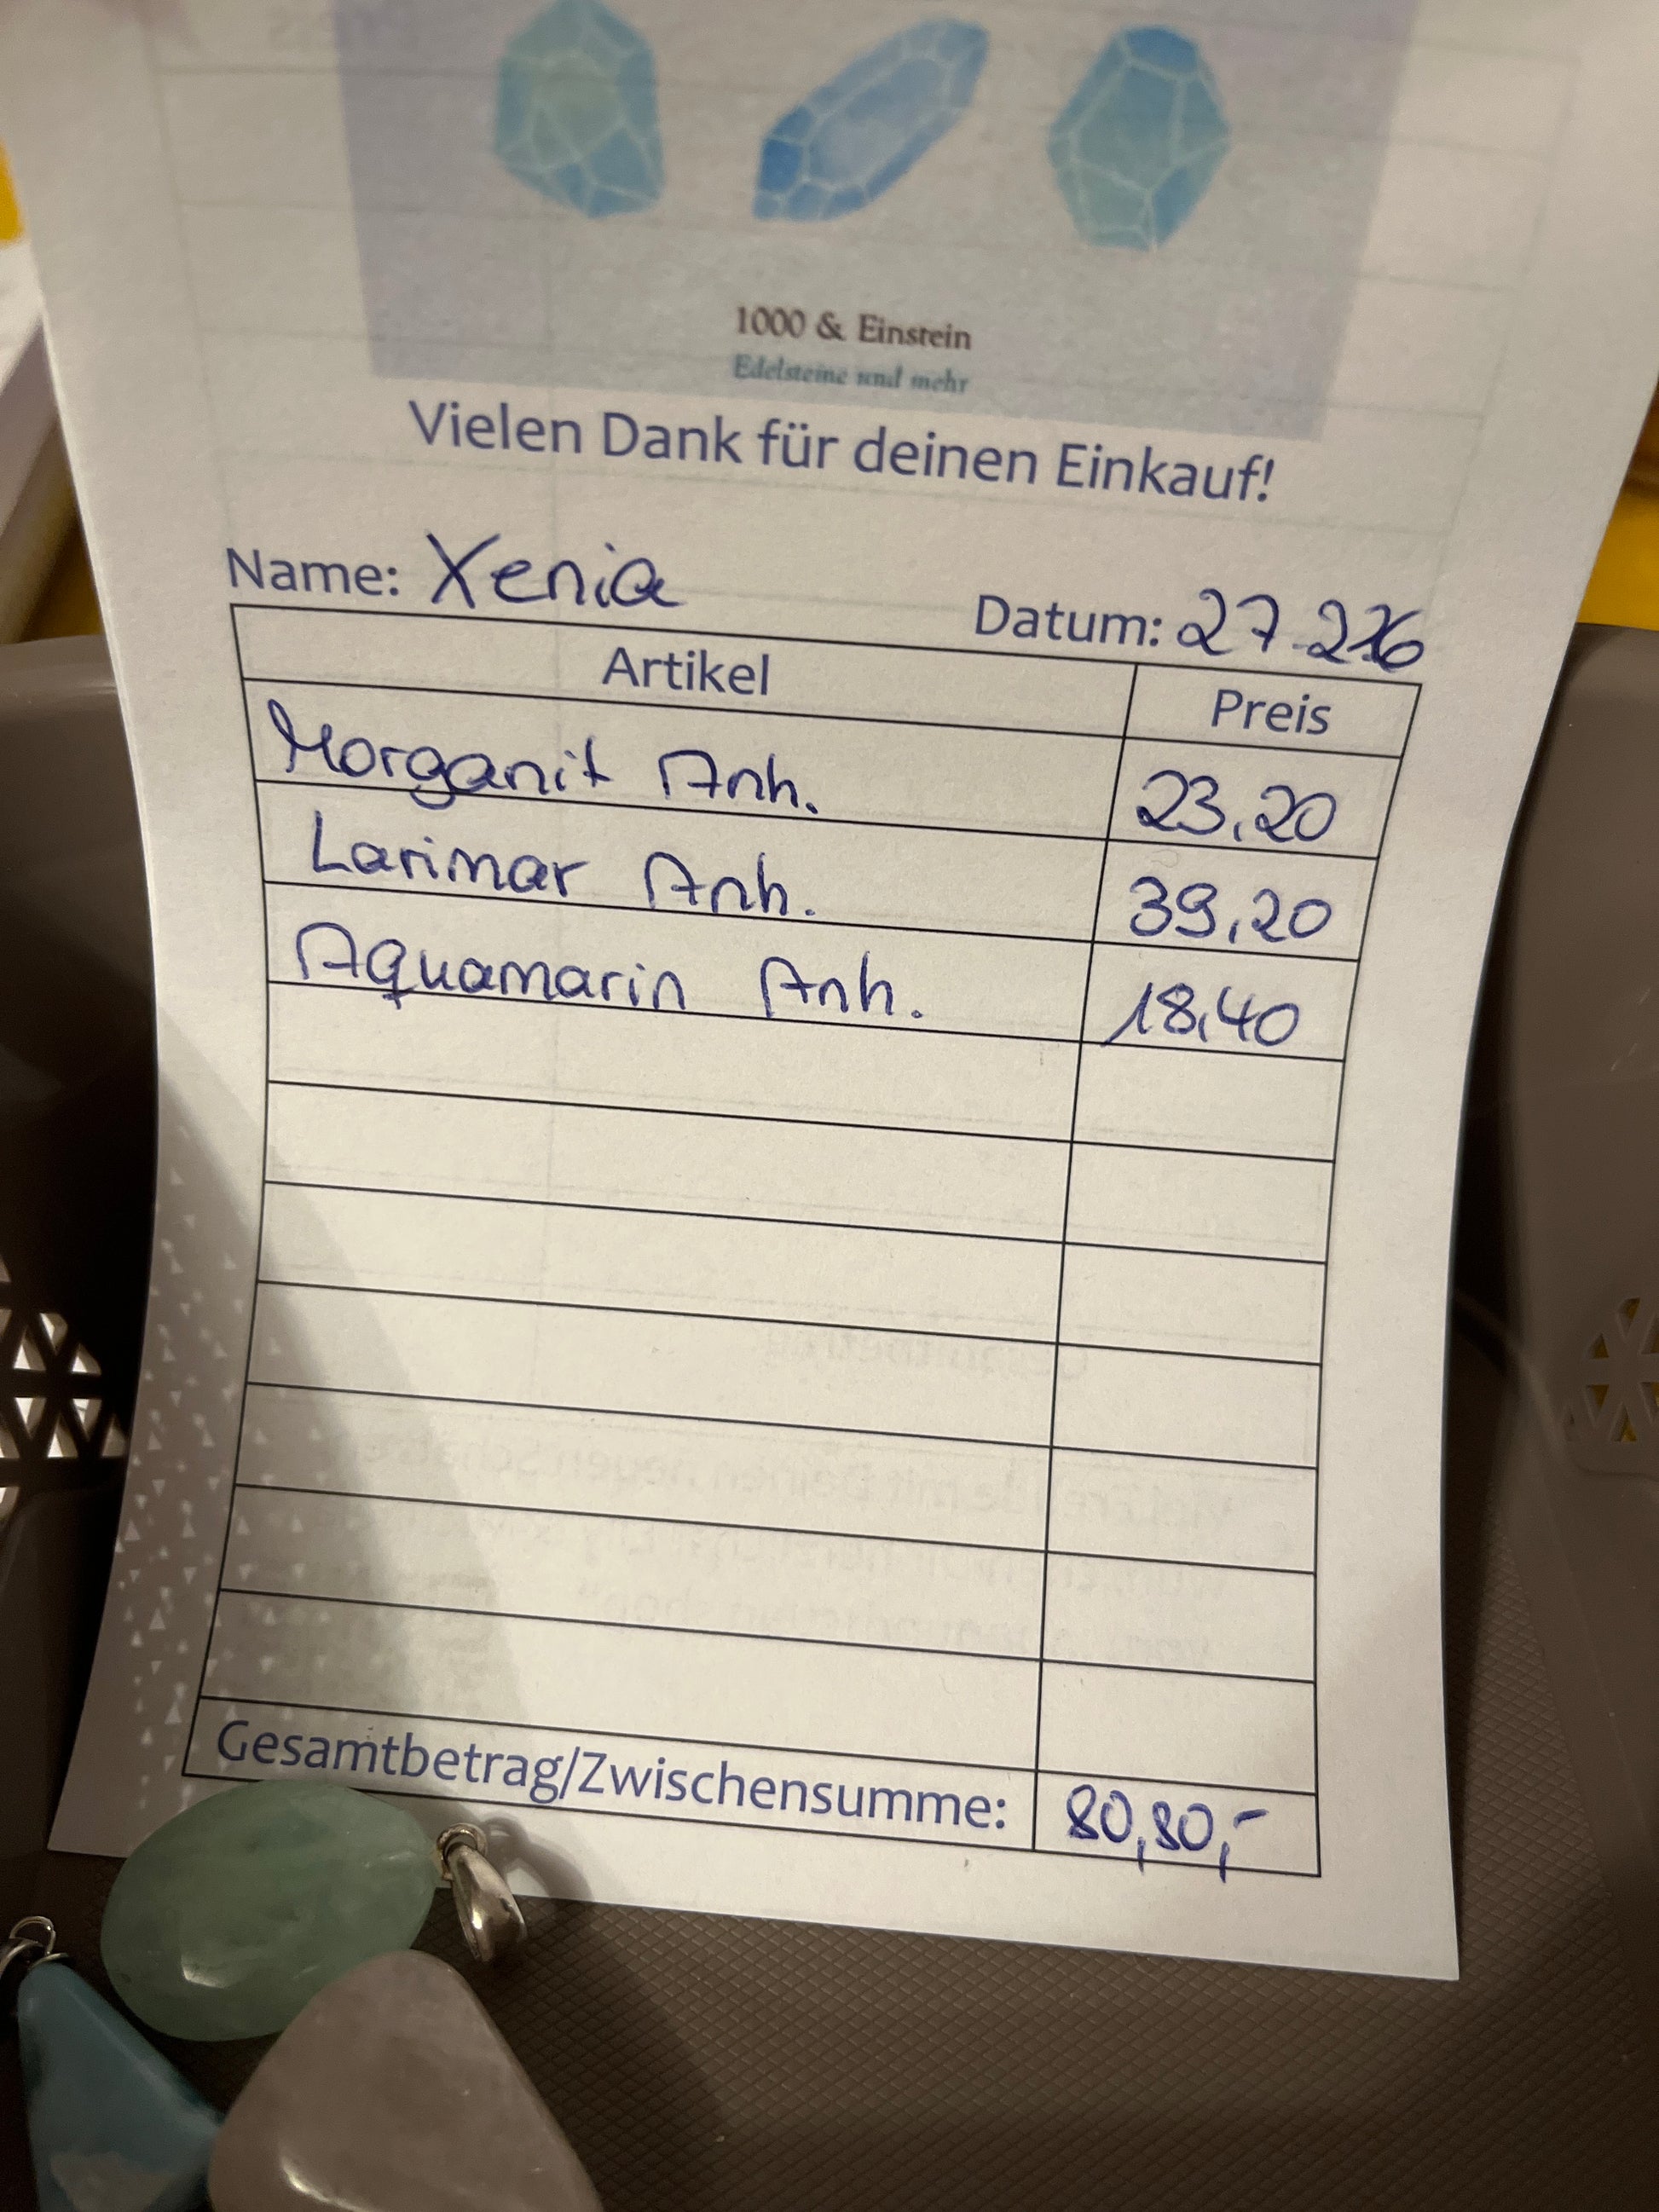 1000 & Einstein
Edelsteine und mehr
Vielen Dank für deinen Einkauf!
Name: Xenia Datum: 27.2.26
Artikel Preis
Morganit Anh. 23,20
Larimar Anh. 39,20
Aquamarin Anh. 18,40
Gesamtbetrag/Zwischensumme: 80,80,-